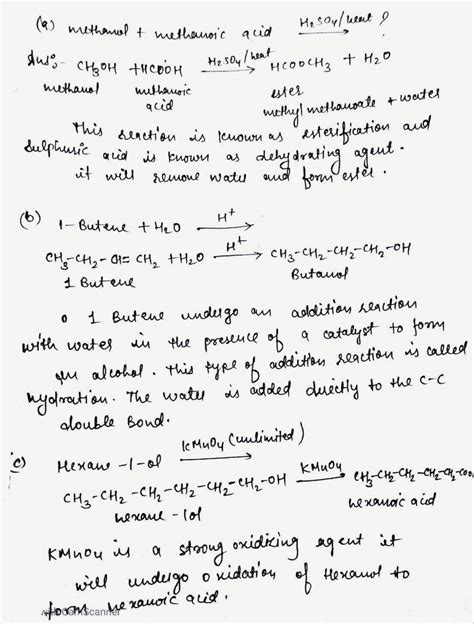 (a) methanol + methanoic acid H2SO4/heat ?
Ans:- CH3OH + HCOOH H2SO4/heat HCOOCH3 + H2O
methanol methanoic acid ester
methyl methanoate + water
This reaction is known as esterification and
Sulphuric acid is known as dehydrating agent.
it will remove water and form ester.
(b) 1-Butene + H2O H+
CH3-CH2-CH=CH2 + H2O H+ CH3-CH2-CH2-CH2-OH
1 Butene Butanol
1 Butene undergo an addition reaction
with water in the presence of a catalyst to form
an alcohol. This type of addition reaction is called
hydration. The water is added directly to the C-C
double Bond.
c) Hexane-1-ol KMnO4 (unlimited)
CH3-CH2-CH2-CH2-CH2-CH2-OH KMnO4 CH3-CH2-CH2-CH2-CH2-COOH
hexane-1ol hexanoic acid
KMnO4 is a strong oxidizing agent it
will undergo oxidation of Hexanol to
form hexanoic acid.